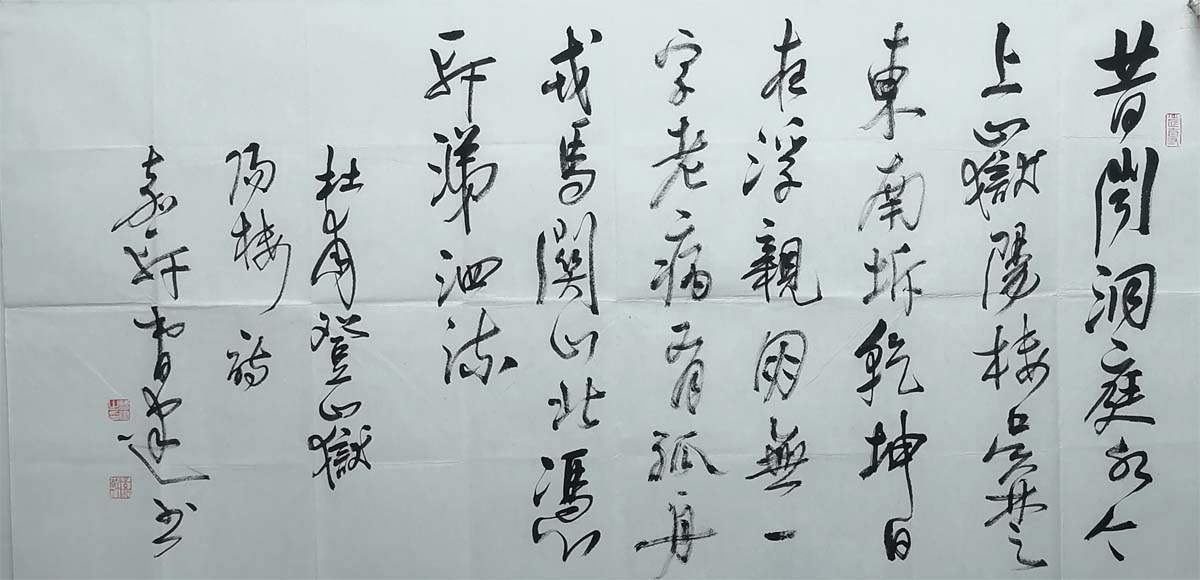 昔聞洞庭水今
上嶽陽樓吳楚
東南坼乾坤日
夜浮親朋無一
字老病有孤舟
戎馬關山北憑
軒涕泗流
杜甫登嶽
陽樓詩
嘉軒曹书